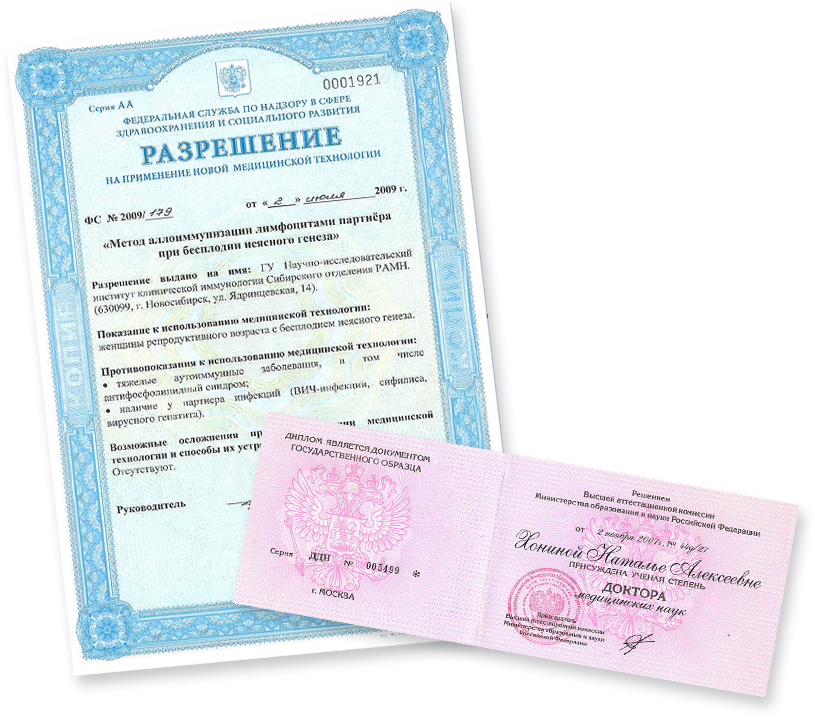 Серия АА
0001921
ФЕДЕРАЛЬНАЯ СЛУЖБА ПО НАДЗОРУ В СФЕРЕ
ЗДРАВООХРАНЕНИЯ И СОЦИАЛЬНОГО РАЗВИТИЯ
РАЗРЕШЕНИЕ
НА ПРИМЕНЕНИЕ НОВОЙ МЕДИЦИНСКОЙ ТЕХНОЛОГИИ
ФС № 2009/179 от «2» июля 2009 г.
«Метод аллоиммунизации лимфоцитами партнёра
при бесплодии неясного генеза»
Разрешение выдано на имя: ГУ Научно-исследовательский
институт клинической иммунологии Сибирского отделения РАМН.
(630099, г. Новосибирск, ул. Ядринцевская, 14).
Показание к использованию медицинской технологии:
женщины репродуктивного возраста с бесплодием неясного генеза.
Противопоказания к использованию медицинской технологии:
• тяжелые аутоиммунные заболевания, в том числе
антифосфолипидный синдром;
• наличие у партнера инфекций (ВИЧ-инфекции, сифилиса,
вирусного гепатита).
Возможные осложнения медицинской
технологии и способы их
Отсутствуют.
Руководитель
КОПИЯ
КОПИЯ
ДИПЛОМ ЯВЛЯЕТСЯ ДОКУМЕНТОМ
ГОСУДАРСТВЕННОГО ОБРАЗЦА
Серия ДДН № 005499 *
г. МОСКВА
Решением
Высшей аттестационной комиссии
Министерства образования и науки Российской Федерации
от 2 ноября 2007г. № 44д/21
Хониной Наталье Алексеевне
ПРИСУЖДЕНА УЧЕНАЯ СТЕПЕНЬ
ДОКТОРА
медицинских наук
Председатель
Высшей аттестационной комиссии
Министерства образования и науки
Российской Федерации